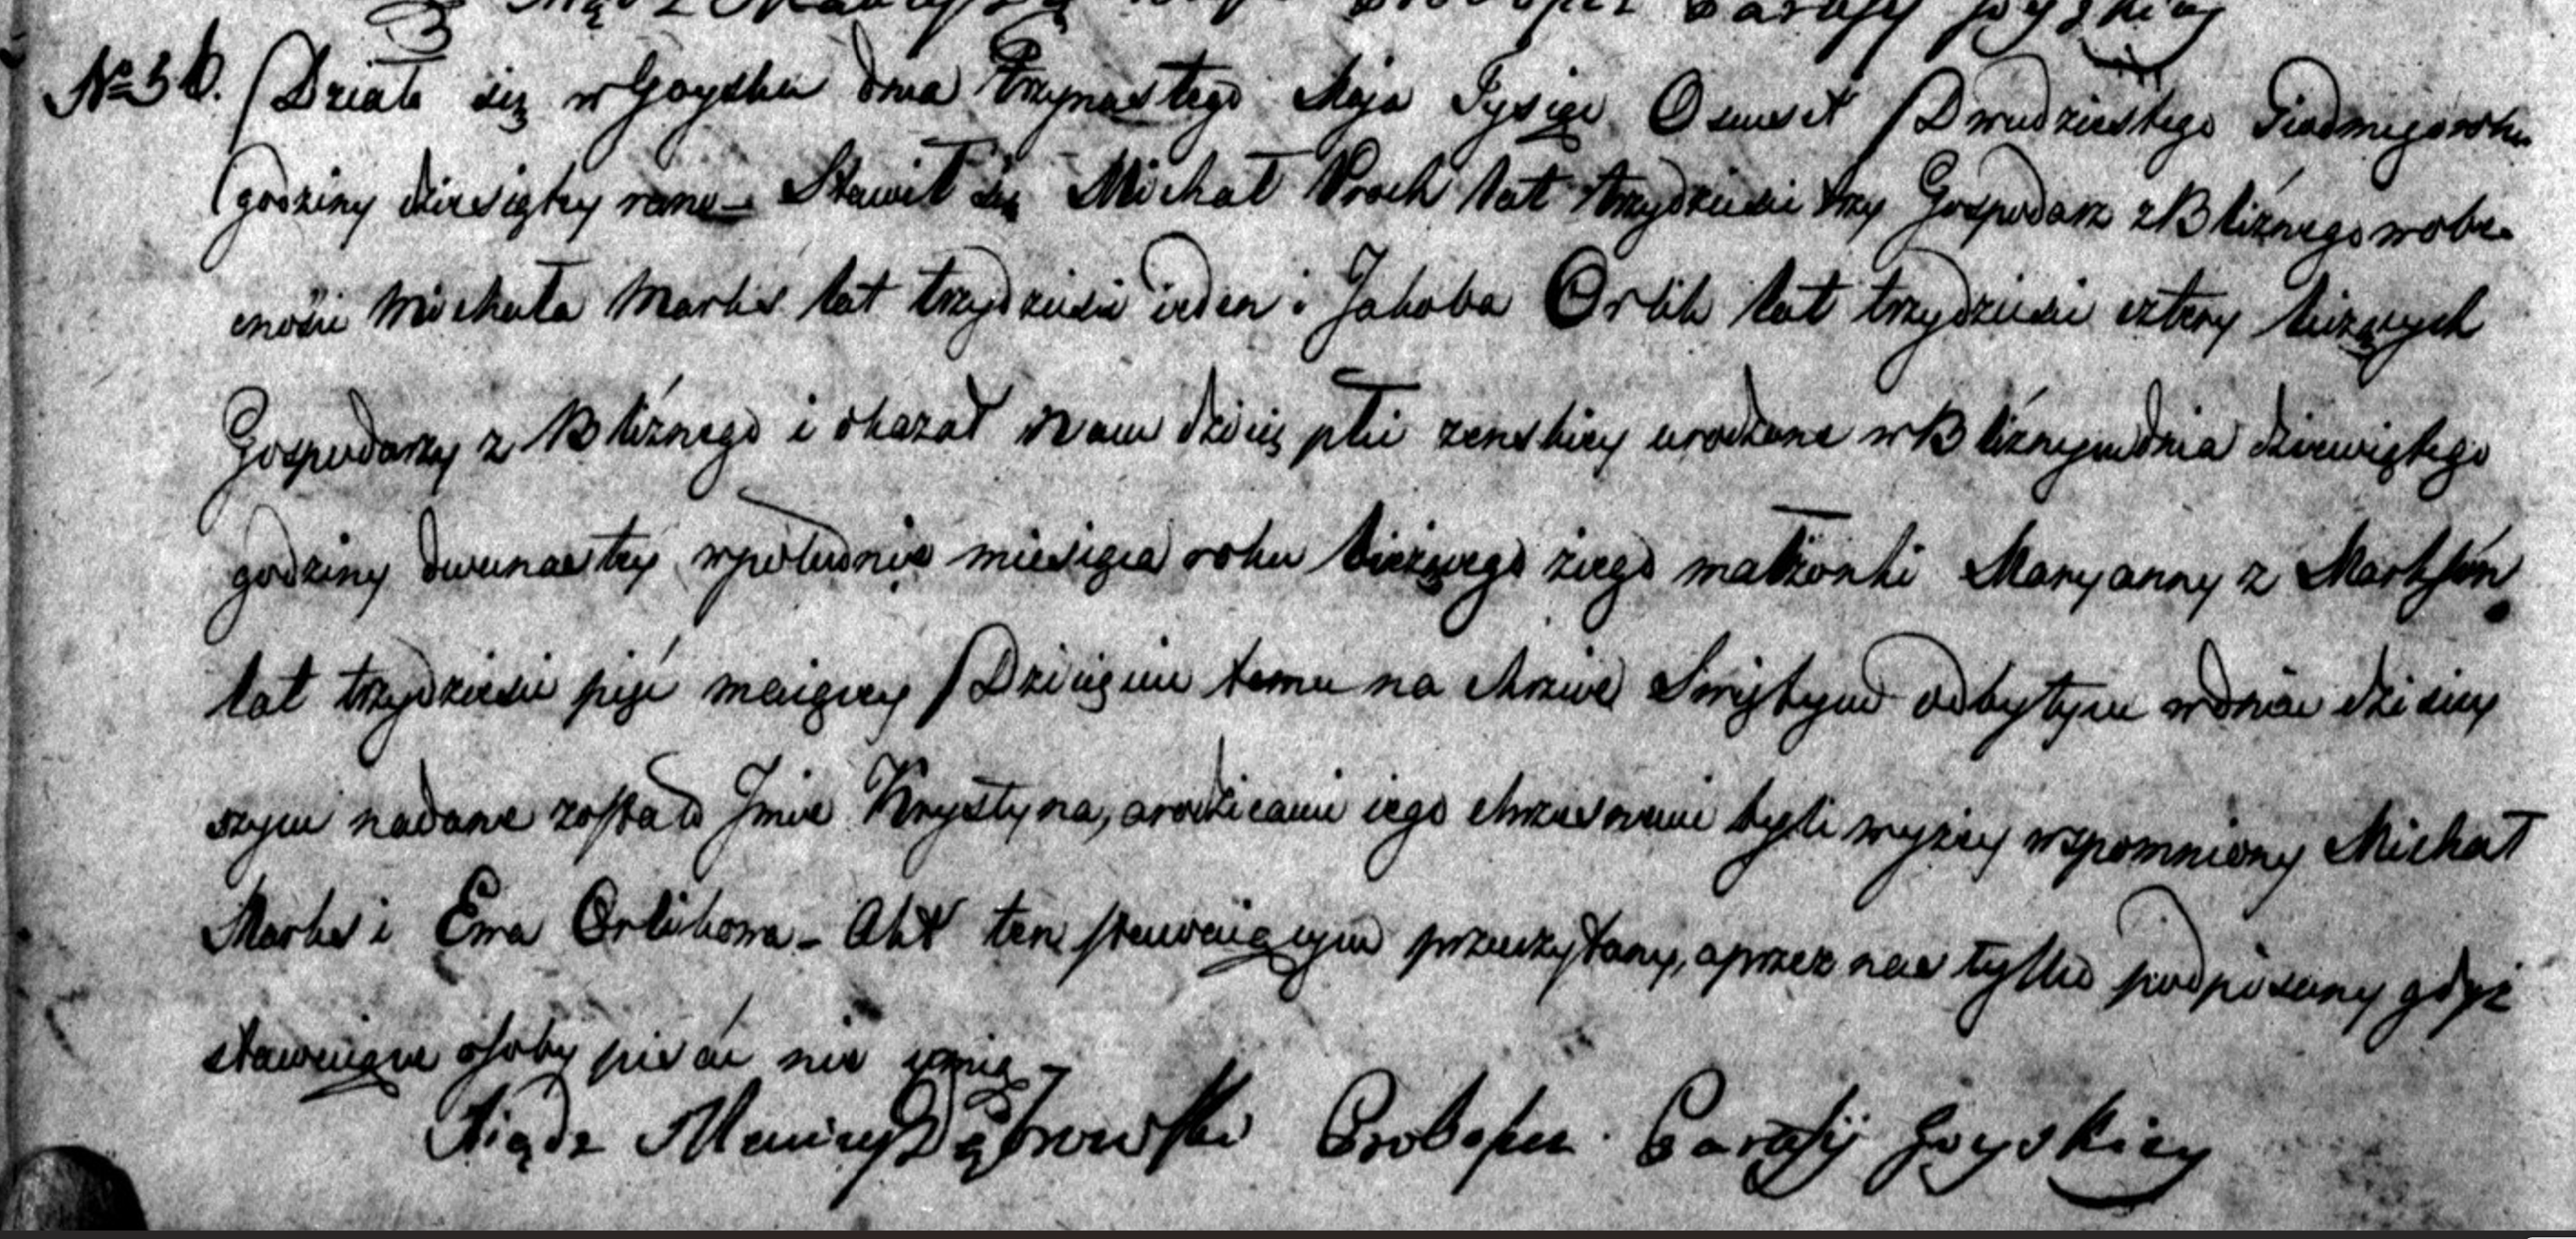 Xiądz Proboszcz Parafij Goyskiey
No 36. Działo się w Goysku dnia Trzynastego Maja Tysiąc Osmset Dwudziestego Siodmego roku
godziny dziesiątey rano – Stawił się Michał Proch lat trzydzieści trzy Gospodarz z Bliźnego w obe
cności Michała Marks lat trzydzieści ieden i Jakoba Orlik lat trzydzieści cztery liczących
Gospodarzy z Bliźnego i okazał Nam dziecię płci zenskiey urodzone w Bliźnym dnia dziewiątego
godziny dwunastey w południe miesiąca roku bieżącego z iego małżonki Maryanny z Marksów
lat trzydzieści pięć maiącey Dziecięciu temu na chrzcie Swiętym odbytym w dniu dzisiey
szym nadane zostało Jmie Krystyna, a rodzicami iego chrzesnemi byli wyżey wspomniony Michał
Marks i Ewa Orlikowa – Akt ten stawaiącym przeczytany, a przez nas tylko podpisany gdyż
stawaiące osoby pisać nie umią –
Xiądz Maciey Dąbrowski Proboszcz Parafij Goyskiey